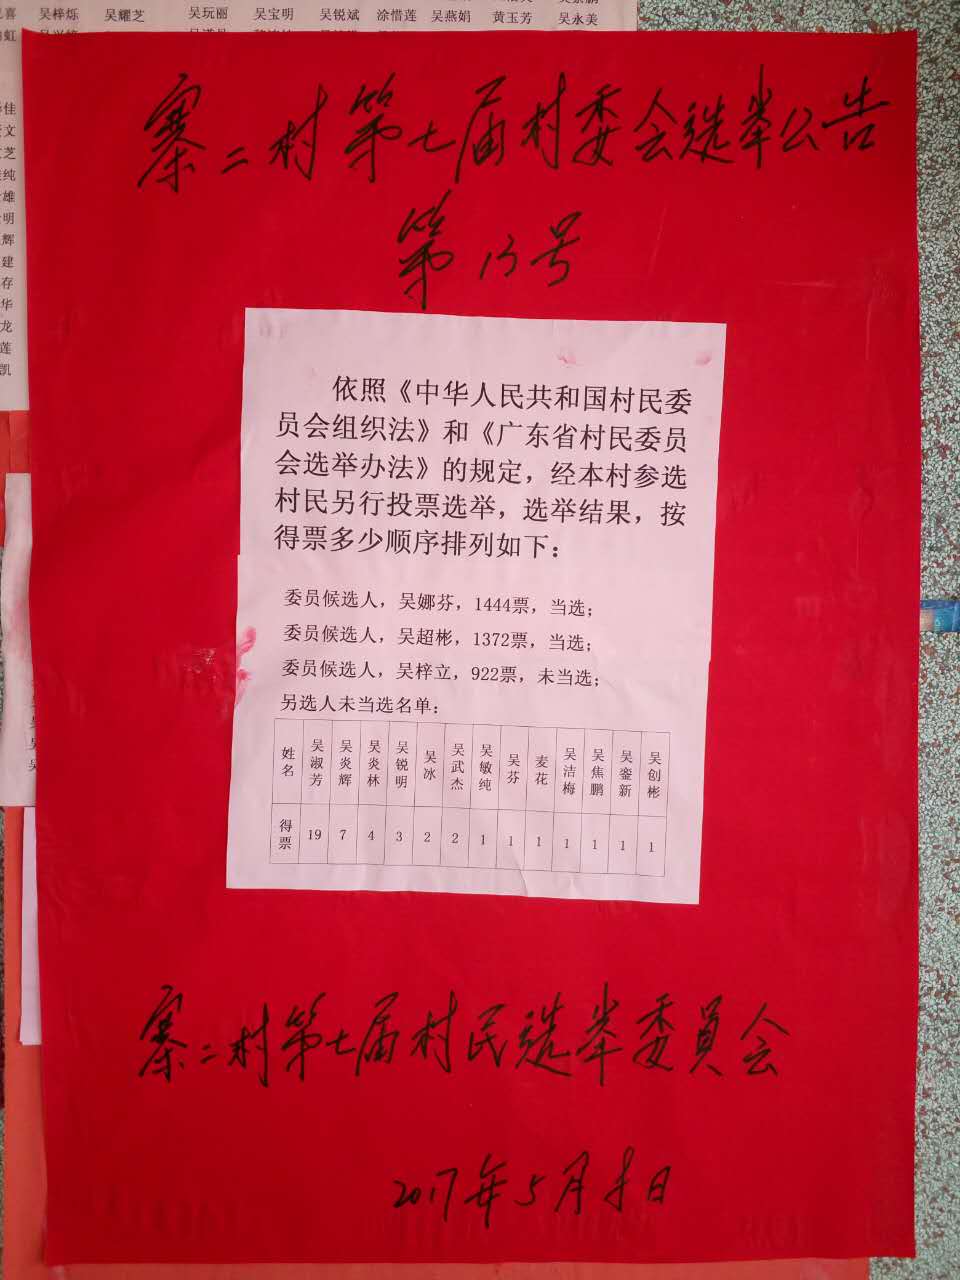 吴梓烁 吴耀芝 吴玩丽 吴宝明 吴锐斌 涂惜莲 吴燕娟 黄玉芳 吴永美
佳
文
芝
纯
雄
明
辉
建
存
华
龙
莲
凯
寨二村第七届村委会选举公告
第13号
依照《中华人民共和国村民委
员会组织法》和《广东省村民委员
会选举办法》的规定，经本村参选
村民另行投票选举，选举结果，按
得票多少顺序排列如下：
委员候选人，吴娜芬，1444票，当选；
委员候选人，吴超彬，1372票，当选；
委员候选人，吴梓立，922票，未当选；
另选人未当选名单：
姓名 吴淑芳 吴炎辉 吴炎林 吴锐明 吴冰 吴武杰 吴敏纯 吴芬 麦花 吴洁梅 吴焦鹏 吴銮新 吴创彬
得票 19 7 4 3 2 2 1 1 1 1 1 1 1
寨二村第七届村民选举委員会
2017年5月 日